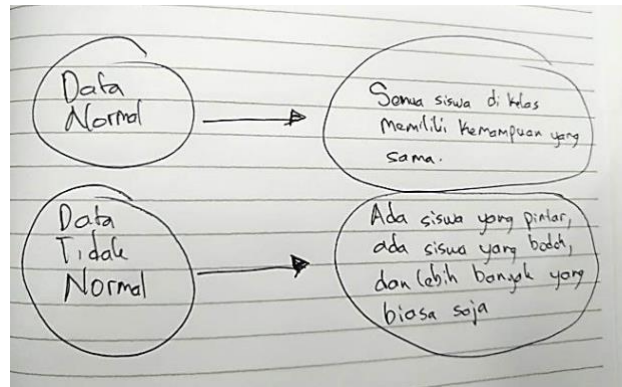 Data
Normal
Semua siswa di kelas
Memiliki kemampuan yang
sama.
Data
Tidak
Normal
Ada siswa yang pintar,
ada siswa yang bodoh,
dan lebih banyak yang
biasa saja